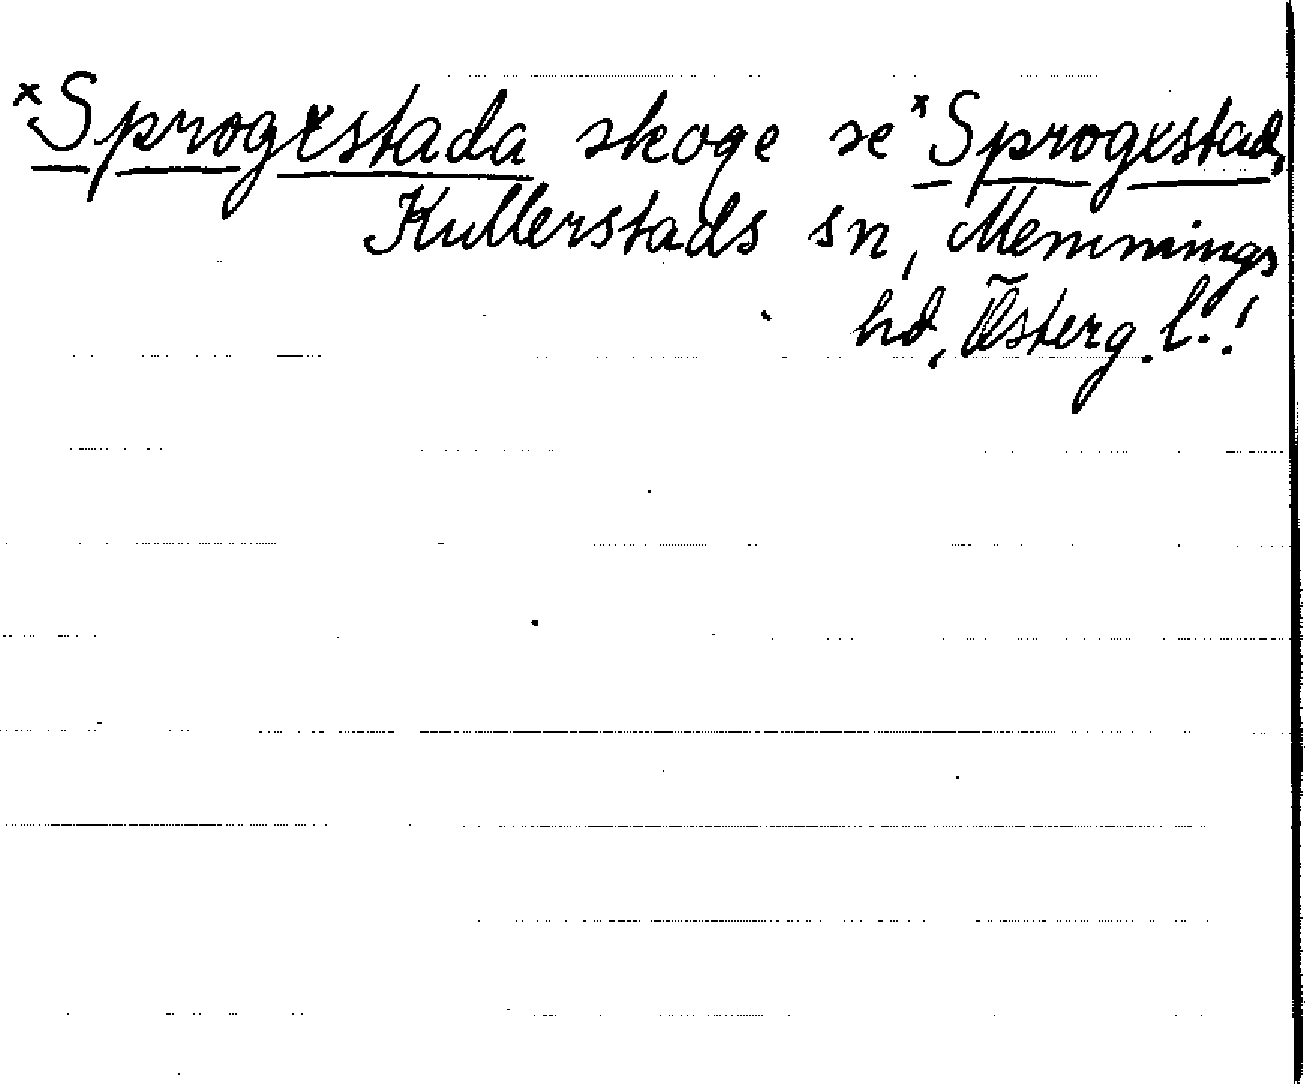 *Sprogestada skoge se *Sprogestad,
Kullerstads sn, Memmings
hd, Österg. l.!